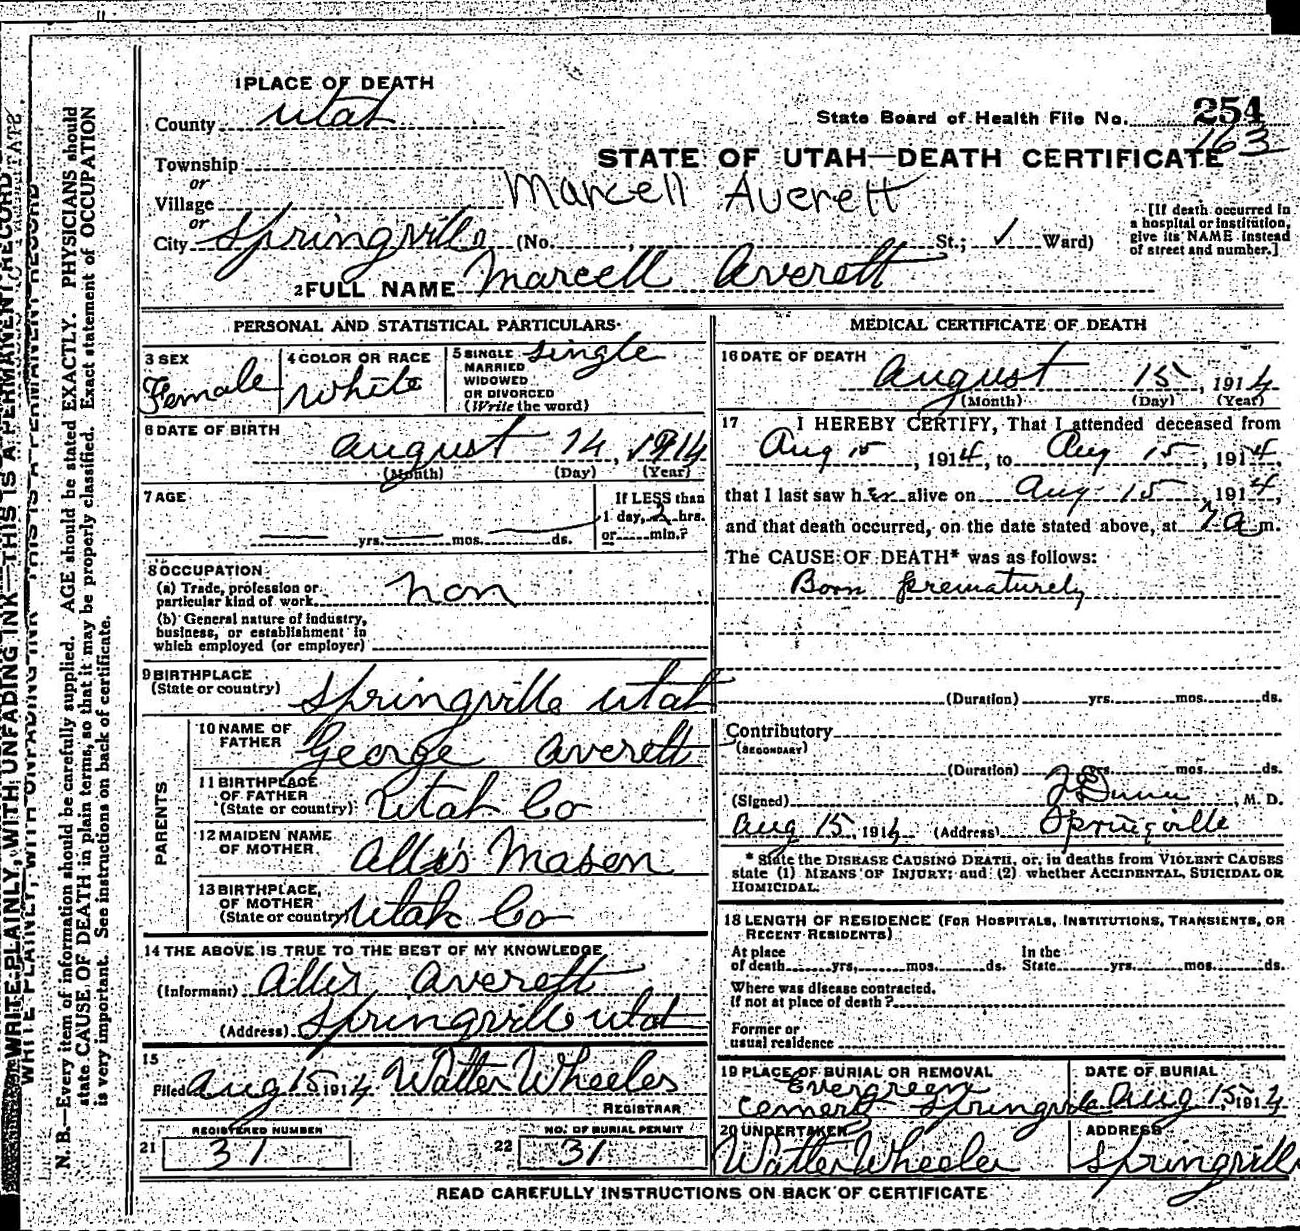 1 PLACE OF DEATH
County Utah
State Board of Health File No. 254
163
Township
or
Village
or
City Springville (No. , St.; 1 Ward)
STATE OF UTAH—DEATH CERTIFICATE
Marcell Averett
[If death occurred in
a hospital or institution,
give its NAME instead
of street and number.]
2 FULL NAME Marcell Averett
PERSONAL AND STATISTICAL PARTICULARS
3 SEX
Female
4 COLOR OR RACE
White
5 SINGLE
MARRIED
WIDOWED
OR DIVORCED
(Write the word)
Single
6 DATE OF BIRTH
August 14, 1914
(Month) (Day) (Year)
7 AGE
yrs. mos. ds.
If LESS than
1 day, 2 hrs.
or min.?
8 OCCUPATION
(a) Trade, profession or
particular kind of work non
(b) General nature of industry,
business, or establishment in
which employed (or employer)
9 BIRTHPLACE
(State or country) Springville Utah
PARENTS
10 NAME OF
FATHER George Averett
11 BIRTHPLACE
OF FATHER
(State or country) Utah Co
12 MAIDEN NAME
OF MOTHER Allis Mason
13 BIRTHPLACE
OF MOTHER
(State or country) Utah Co
14 THE ABOVE IS TRUE TO THE BEST OF MY KNOWLEDGE
(Informant) Allis Averett
(Address) Springville Utah
15
Filed Aug 15 1914 Walter Wheeler
REGISTRAR
21 REGISTERED NUMBER
31
22 NO. OF BURIAL PERMIT
31
MEDICAL CERTIFICATE OF DEATH
16 DATE OF DEATH
August 15, 1914
(Month) (Day) (Year)
17 I HEREBY CERTIFY, That I attended deceased from
Aug 15, 1914, to Aug 15, 1914,
that I last saw her alive on Aug 15, 1914,
and that death occurred, on the date stated above, at 7 a m.
The CAUSE OF DEATH* was as follows:
Born prematurely
(Duration) yrs. mos. ds.
Contributory
(SECONDARY)
(Duration) yrs. mos. ds.
(Signed) Dunn M. D.
Aug 15, 1914 (Address) Springville
* State the DISEASE CAUSING DEATH, or, in deaths from VIOLENT CAUSES
state (1) MEANS OF INJURY; and (2) whether ACCIDENTAL, SUICIDAL OR
HOMICIDAL.
18 LENGTH OF RESIDENCE (FOR HOSPITALS, INSTITUTIONS, TRANSIENTS, OR
RECENT RESIDENTS)
At place
of death yrs, mos. ds. In the
State yrs. mos. ds.
Where was disease contracted,
if not at place of death?
Former or
usual residence
19 PLACE OF BURIAL OR REMOVAL
Evergreen
Springville
DATE OF BURIAL
Aug 15, 1914
20 UNDERTAKER
Walter Wheeler
ADDRESS
Springville
READ CAREFULLY INSTRUCTIONS ON BACK OF CERTIFICATE
WRITE PLAINLY, WITH UNFADING INK—THIS IS A PERMANENT RECORD
N. B.—Every item of information should be carefully supplied. AGE should be stated EXACTLY. PHYSICIANS should
state CAUSE OF DEATH in plain terms, so that it may be properly classified. Exact statement of OCCUPATION
is very important. See instructions on back of certificate.